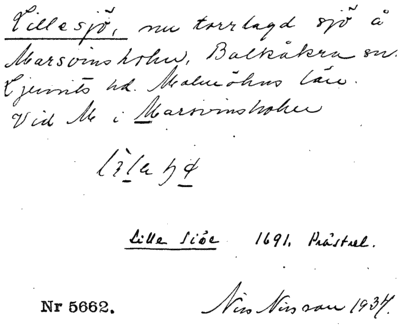 Lillesjö, nu torrlagd sjö å
Marsvinsholm, Balkåkra sn.
Ljunits hd. Malmöhus län.
Vid M i Marsvinsholm
Lille Siöe 1691. Prästrel.
Nr 5662. Nils Nilsson 1937.